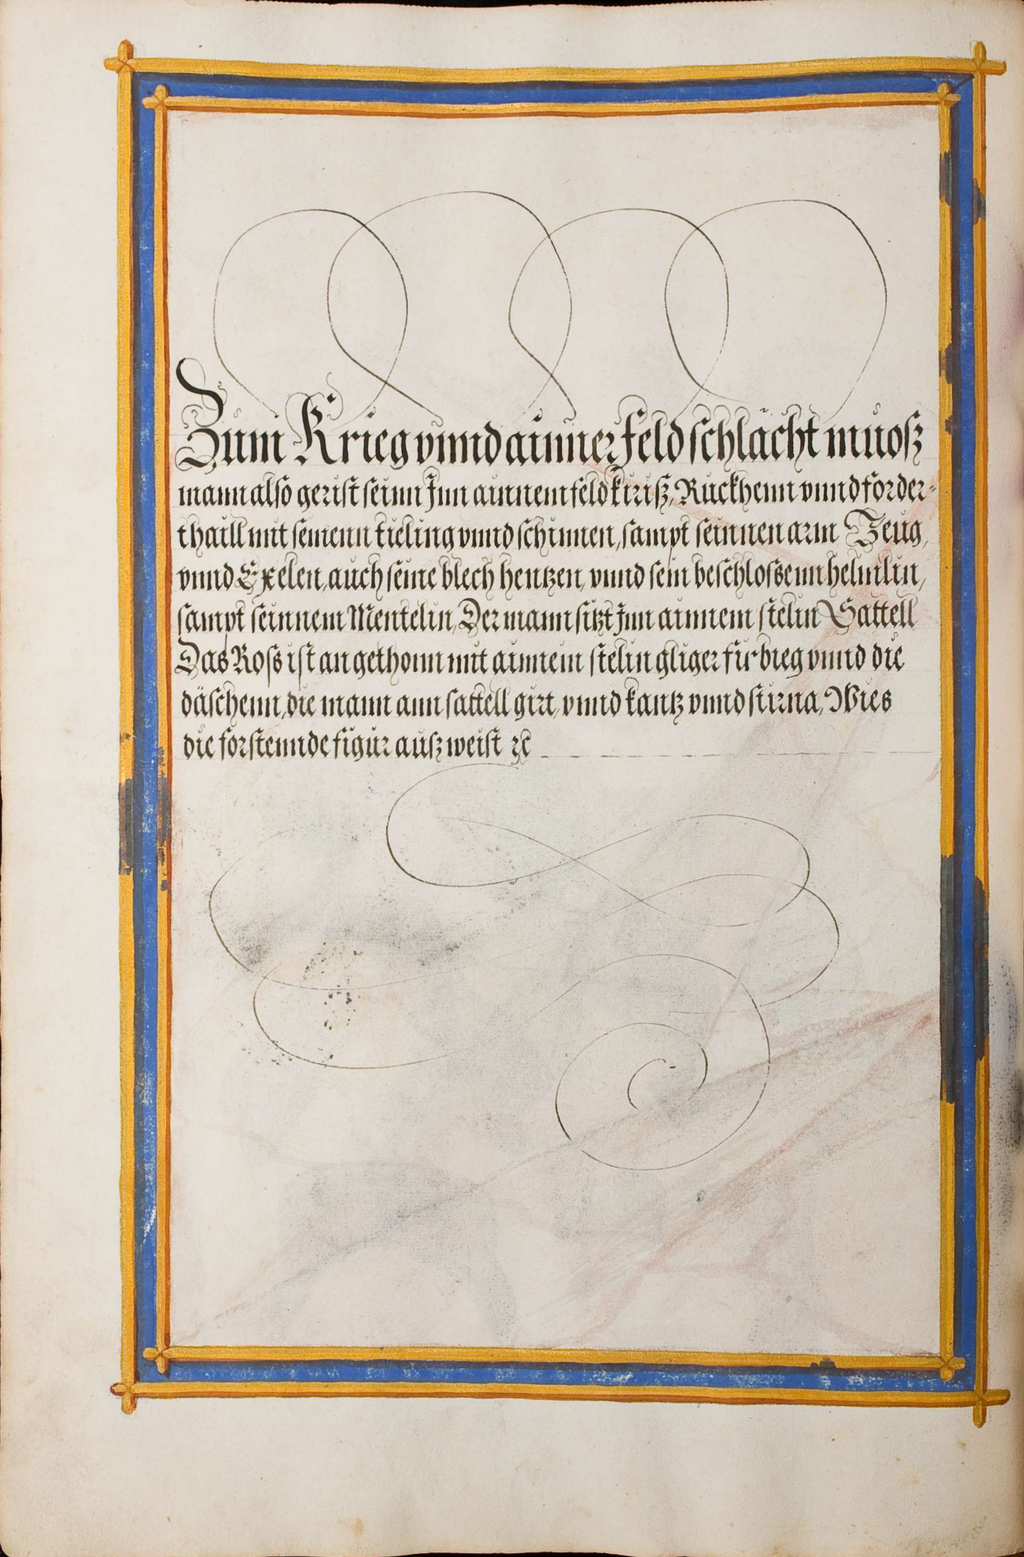 Zum Krieg vnnd ainner feld schlacht muosz
mann also gerist seinn Jnn ainnem feld kirisz, Ruckhenn vnnd forder-
thaill mit semenn kieling vnnd schinnen, sampt seinnen arm Zeug,
vnnd Exelen, auch seine blech hentzen, vnnd sein beschlossenn helmlin,
sampt seinnem Mentelin, Der mann sitzt Jnn ainnem stelin Sattell
Das Ross ist an gethonn mit ainnem stelin gliger fürbieg vnnd die
däschenn, die mann ann sattell girt, vnnd kantz vnnd stirna, Wies
die forstennde figur ausz weist ꝛc